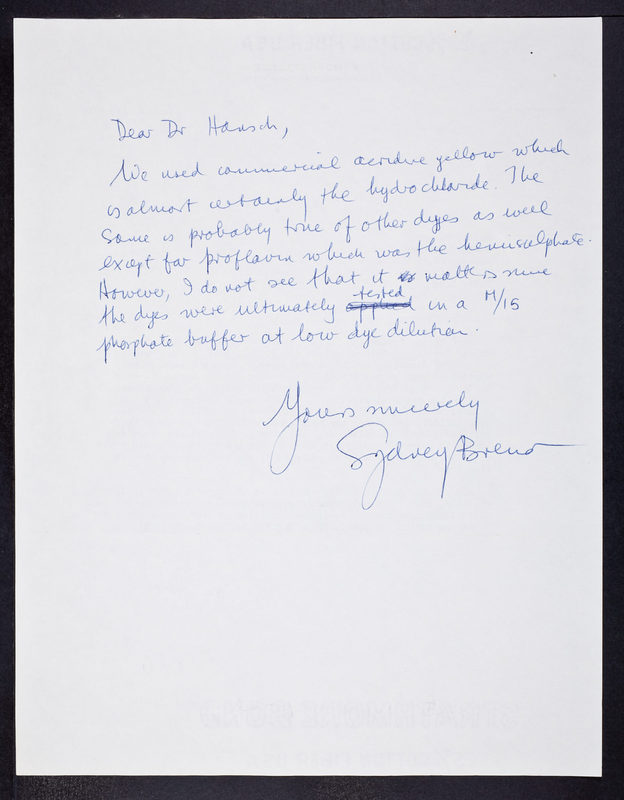 Dear Dr Hansch,
We used commercial acridine yellow which
is almost certainly the hydrochloride. The
same is probably true of other dyes as well
except for proflavin which was the hemisulphate.
However, I do not see that it matters since
the dyes were ultimately applied tested in a M/15
phosphate buffer at low dye dilution.
Yours sincerely
Sydney Brenner